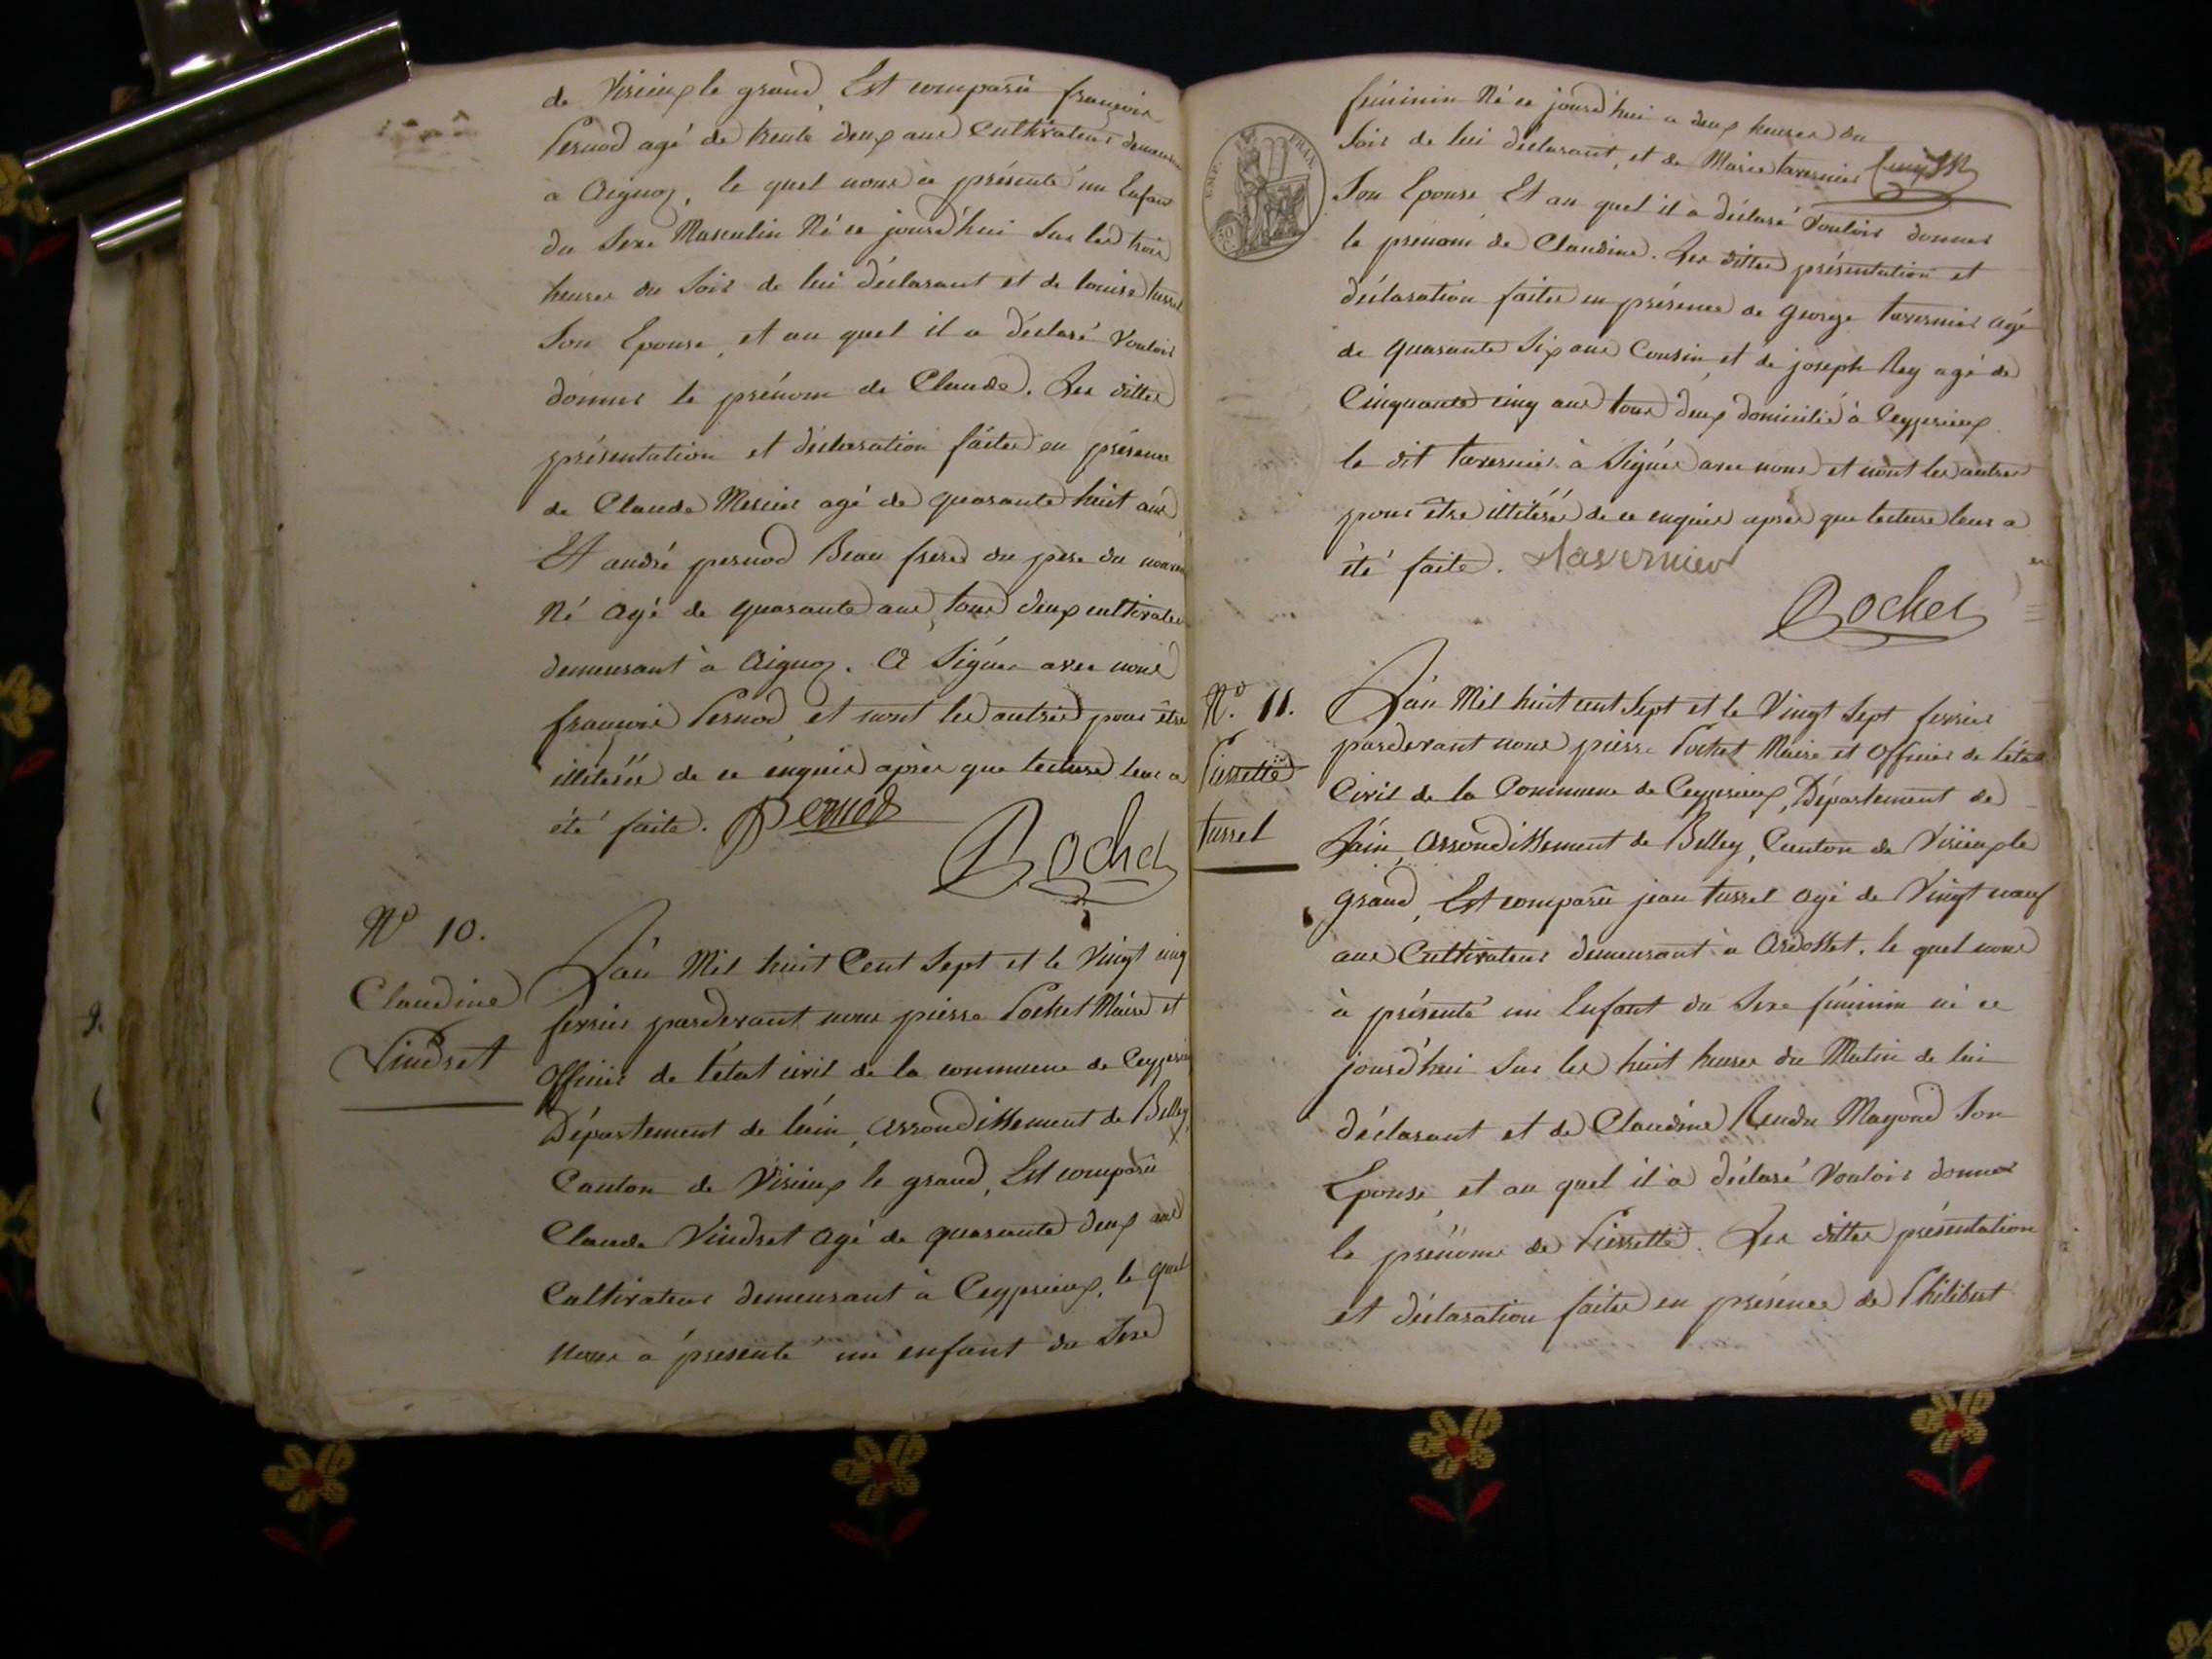 de Virieux le grand, Est comparû françois
Pernod agé de trente deux ans Cultivateur demeurant
a Aignoz, le quel nous a présenté un Enfant
du Sexe Masculin Né ce jourd'hui Sur les trois
heures du Soir de lui déclarant et de louise turrel
Son Epouse, et au quel il a déclaré Vouloir
donner le prénom de Claude. Les dittes
présentation et déclaration faites en présence
de Claude Mercier agé de quarante huit ans
Et andré pernod Beau frere du pere du nouveau
Né agé de quarante ans, tous deux cultivateurs
demeurant à Aignoz. A Signée avec nous
françois Pernod et nont les autres pour être
illiterées de ce enquier après que lecture leur a
été faite. Pernod
Pochet
N° 10.
Claudine
Vindret
L'an Mil huit Cent Sept et le Vingt cinq
fevrier pardevant nous pierre Pochet Maire et
Officier de l'état civil de la commune de Ceyzerieux
Département de l'ain, arrondissement de Belley,
Canton de Virieux le grand, Est comparû
Claude Vindret agé de quarante deux ans
Cultivateur demeurant à Ceyzerieux, le quel
nous a présenté un enfant du Sexe
EMP. FRAN.
50
féminin Né ce jourd'hui a deux heures du
Soir de lui déclarant, et de Marie tavernier
Son Epouse Et au quel il a déclaré Vouloir donner
le prénom de Claudine. Les dittes présentation et
déclaration faites en présence de George tavernier agé
de quarante Six ans Cousin, et de joseph Rey agé de
Cinquante cinq ans tous deux domicilié à Ceyzerieux
le dit tavernier à Signée avec nous et nont les autres
pour être illitérées de ce enquier après que lecture leur a
été faite. Tavernier
Pochet
N°. 11.
Pierrette
turrel
L'an Mil huit cent Sept et le Vingt Sept fevrier
pardevant nous pierre Pochet Maire et Officier de l'état
Civil de la Commune de Ceyzerieux, Département de
L'ain, Arrondissement de Belley, Canton de Virieux le
grand, Est comparû jean turrel agé de Vingt neuf
ans Cultivateur demeurant à Ardosset. le quel nous
à présenté un Enfant du Sexe féminin né ce
jourd'hui Sur les huit heures du Matin de lui
déclarant et de Claudine Rendu Magond Son
Epouse, et au quel il à déclaré Vouloir donner
le prénome de Pierrette. Les dittes présentation
et déclaration faites en présence de Philibert